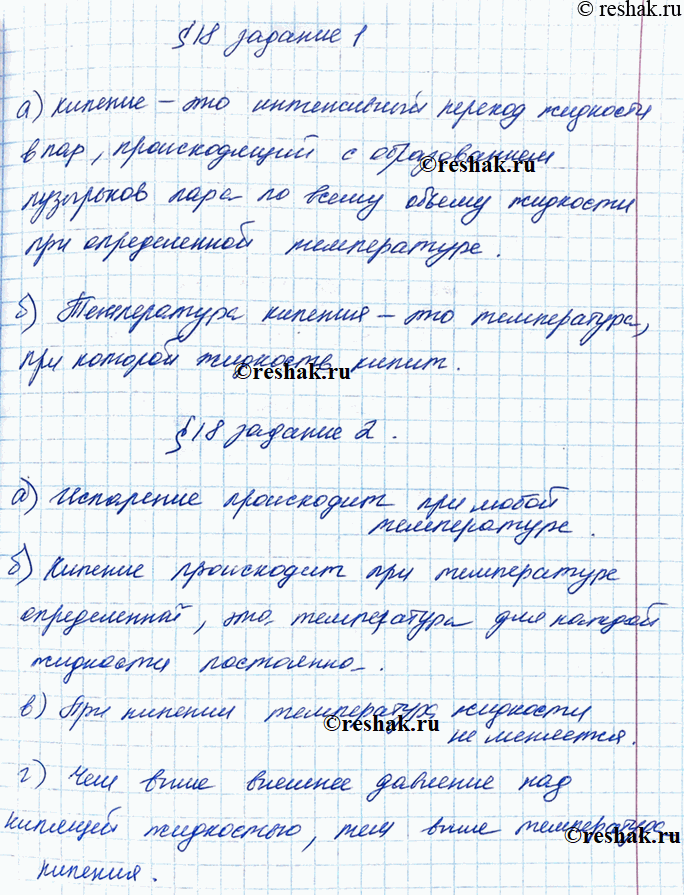 ©reshak.ru
§18 задание 1
а) Кипение – это интенсивный переход жидкости
в пар, происходящий с образованием
©reshak.ru
пузырьков пара по всему объему жидкости
при определенной температуре.
б) Температура кипения – это температура,
при которой жидкость кипит.
©reshak.ru
§18 задание 2.
а) Испарение происходит при любой
температуре.
б) Кипение происходит при температуре
определенной, эта температура для каждой
жидкости постоянна.
в) При кипении температура жидкости
©reshak.ru
не меняется.
г) Чем выше внешнее давление над
кипящей жидкостью, тем выше температура
©reshak.ru
кипения.